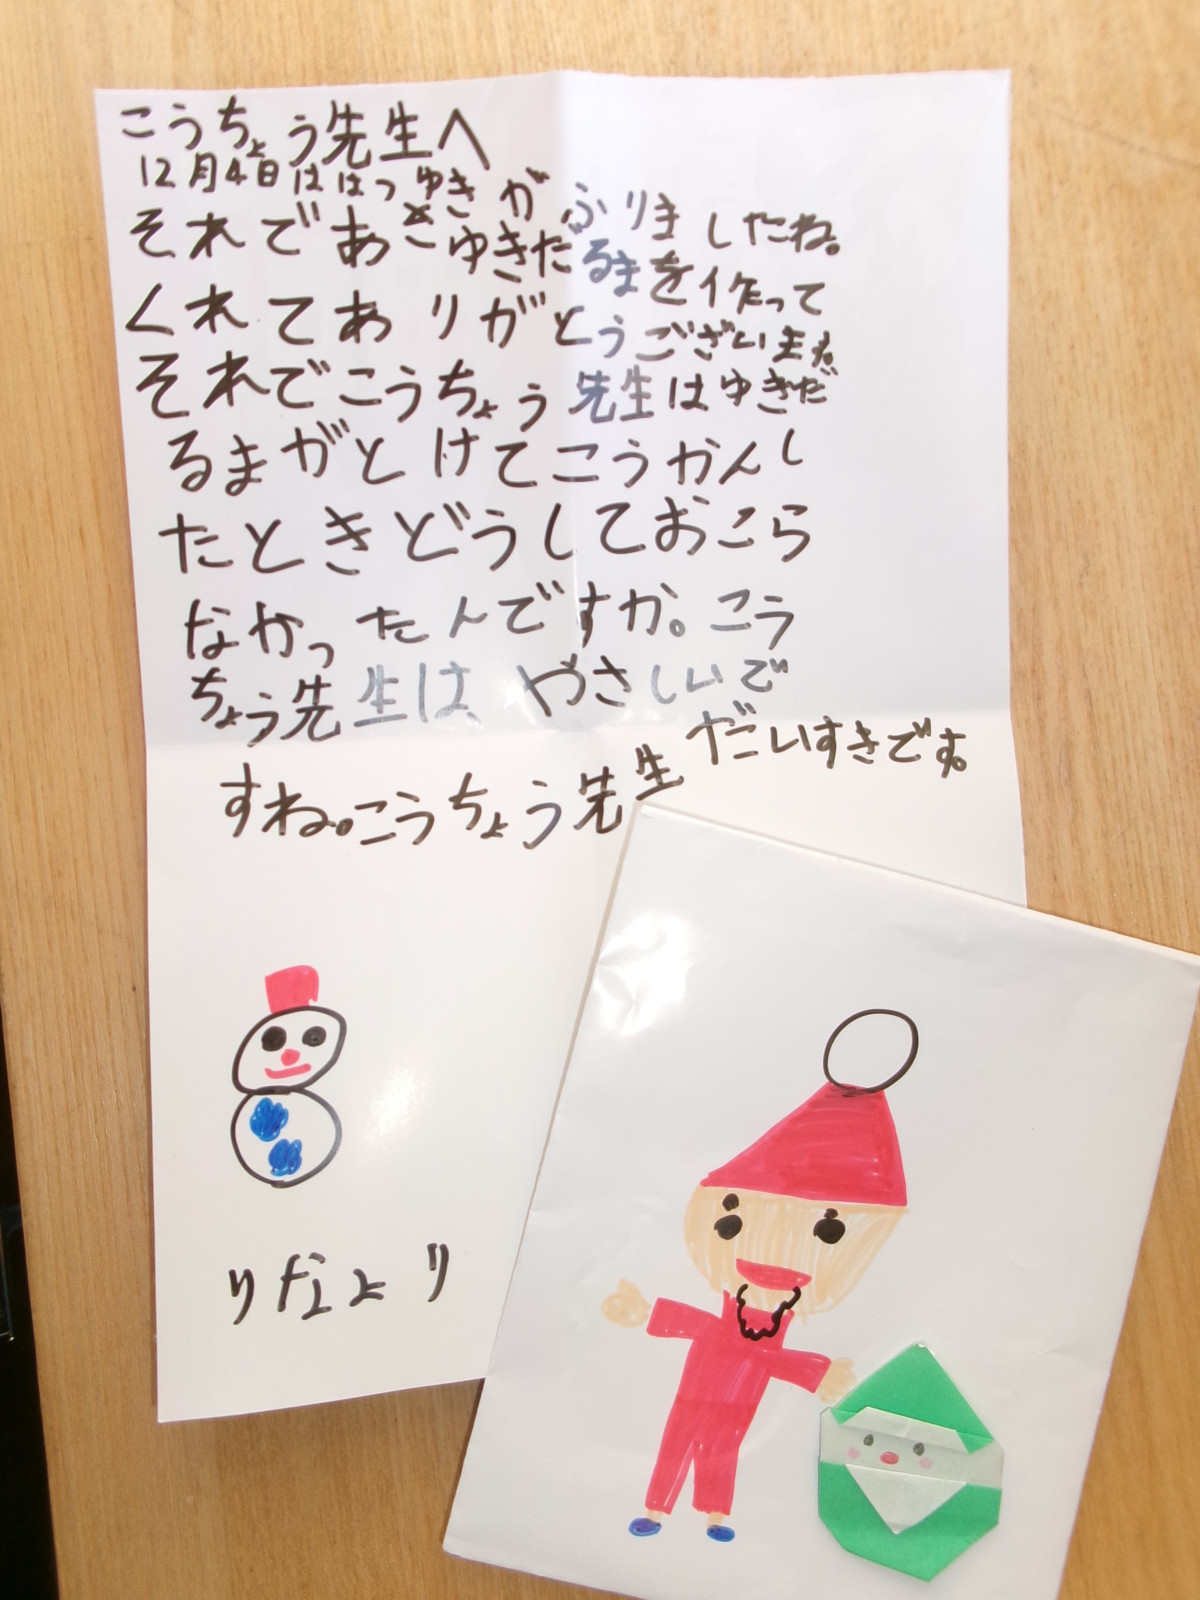 こうちょう先生へ
12月4日ははつゆきがふりましたね。
それであさゆきだるまを作って
くれてありがとうございます。
それでこうちょう先生はゆきだ
るまがとけてこうかんし
たときどうしておこら
なかったんですか。こう
ちょう先生は、やさしいで
すね。こうちょう先生だいすきです。
りなより